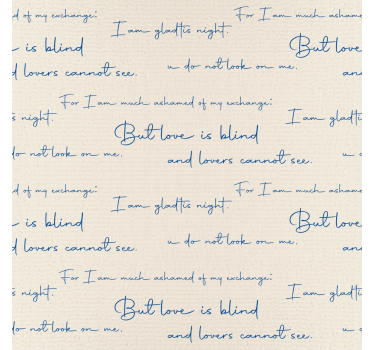 d of my exchange: For I am much ashame
I am glad'tis night.
is blind But love
d lovers cannot see. u do not look on me. an
For I am much ashamed of my exchange:
s night. I am glad'ti
But love is blind
do not look on me. and lovers cannot see. u
d of my exchange: For I am much ashame
I am glad'tis night.
is blind But love
d lovers cannot see. u do not look on me. an
For I am much ashamed of my exchange:
s night. I am glad'ti
But love is blind
do not look on me. and lovers cannot see. u